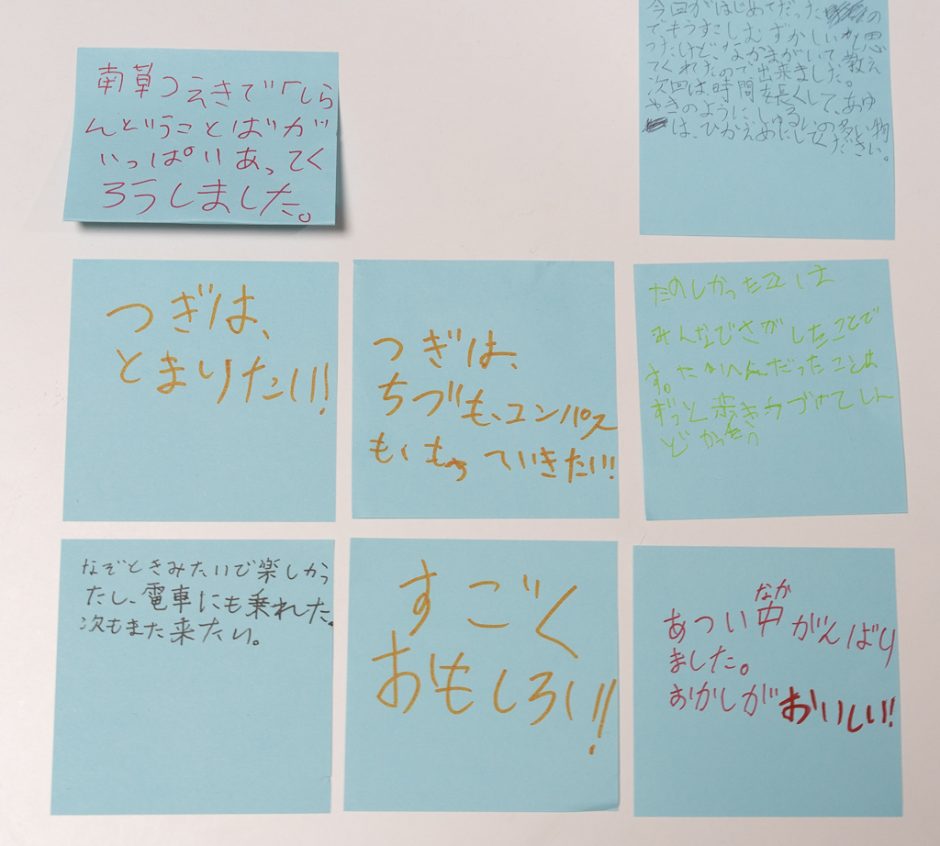 南草つえきで「しら
んどうことばが
いっぱいあってく
ろうしました。
今回がはじめてだった
でもうすこしむずかしいかと思
ったけどなかまがいて、教え
てくれたので出来ました。
次回は時間を長くして、あゆ
やきのようにしゅるいの多い物
は、ひかえめにしてください。
つぎは、
とまりたい!!
つぎは、
ちづも、コンパス
も、もっていきたい!!
たのしかった
みんなでさがしたことで
す。たいへんだったことは
ずっと歩きつづけてしん
どかっ
なぞときみたいで楽しかっ
たし、電車にも乗れた。
次もまた来たい。
すごく
おもしろい!!
なか
あつい中がんばり
ました。
おかしがおいしい!